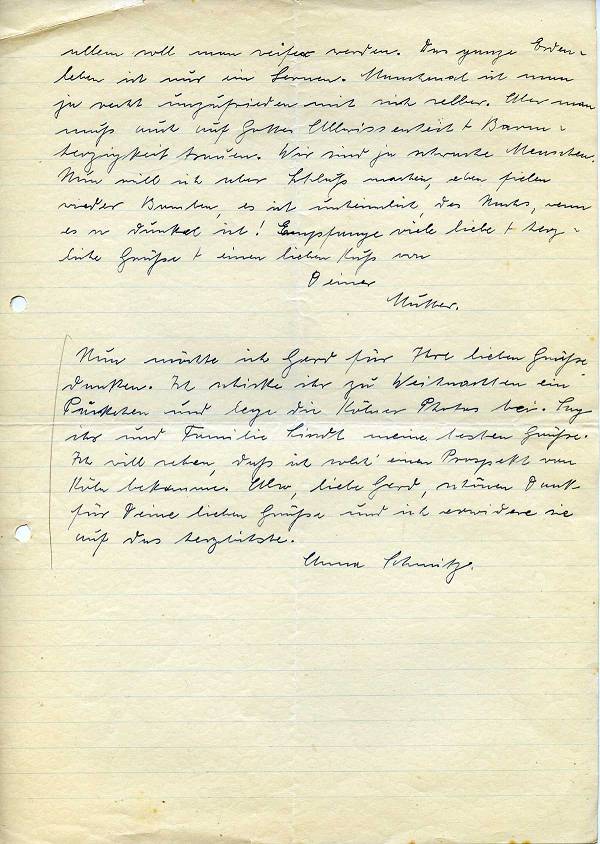 allem soll man reifer werden. Das ganze Erden-
leben ist nur ein Lernen. Manchmal ist man
ja recht unzufrieden mit sich selber. Aber man
muß auch auf Gottes Allwissenheit + Barm-
herzigkeit trauen. Wir sind ja schwache Menschen.
Nun will ich aber Schluß machen, eben fielen
wieder Bomben, es ist unheimlich, des Nachts, wenn
es so dunkel ist! Empfange viele liebe + herz-
liche Grüße + einen lieben Kuß von
Deiner
Mutter.
Nun möchte ich Gerd für Ihre lieben Grüße
danken. Ich schicke ihr zu Weihnachten ein
Päckchen und lege die Kölner Photos bei. Sag
ihr und Familie Lindt meine besten Grüße.
Ich will sehen, daß ich noch einen Prospekt von
Köln bekomme. Also, liebe Gerd, schönen Dank
für Deine lieben Grüße und ich erwidere sie
auf das herzlichste.
Anna Schmitz.